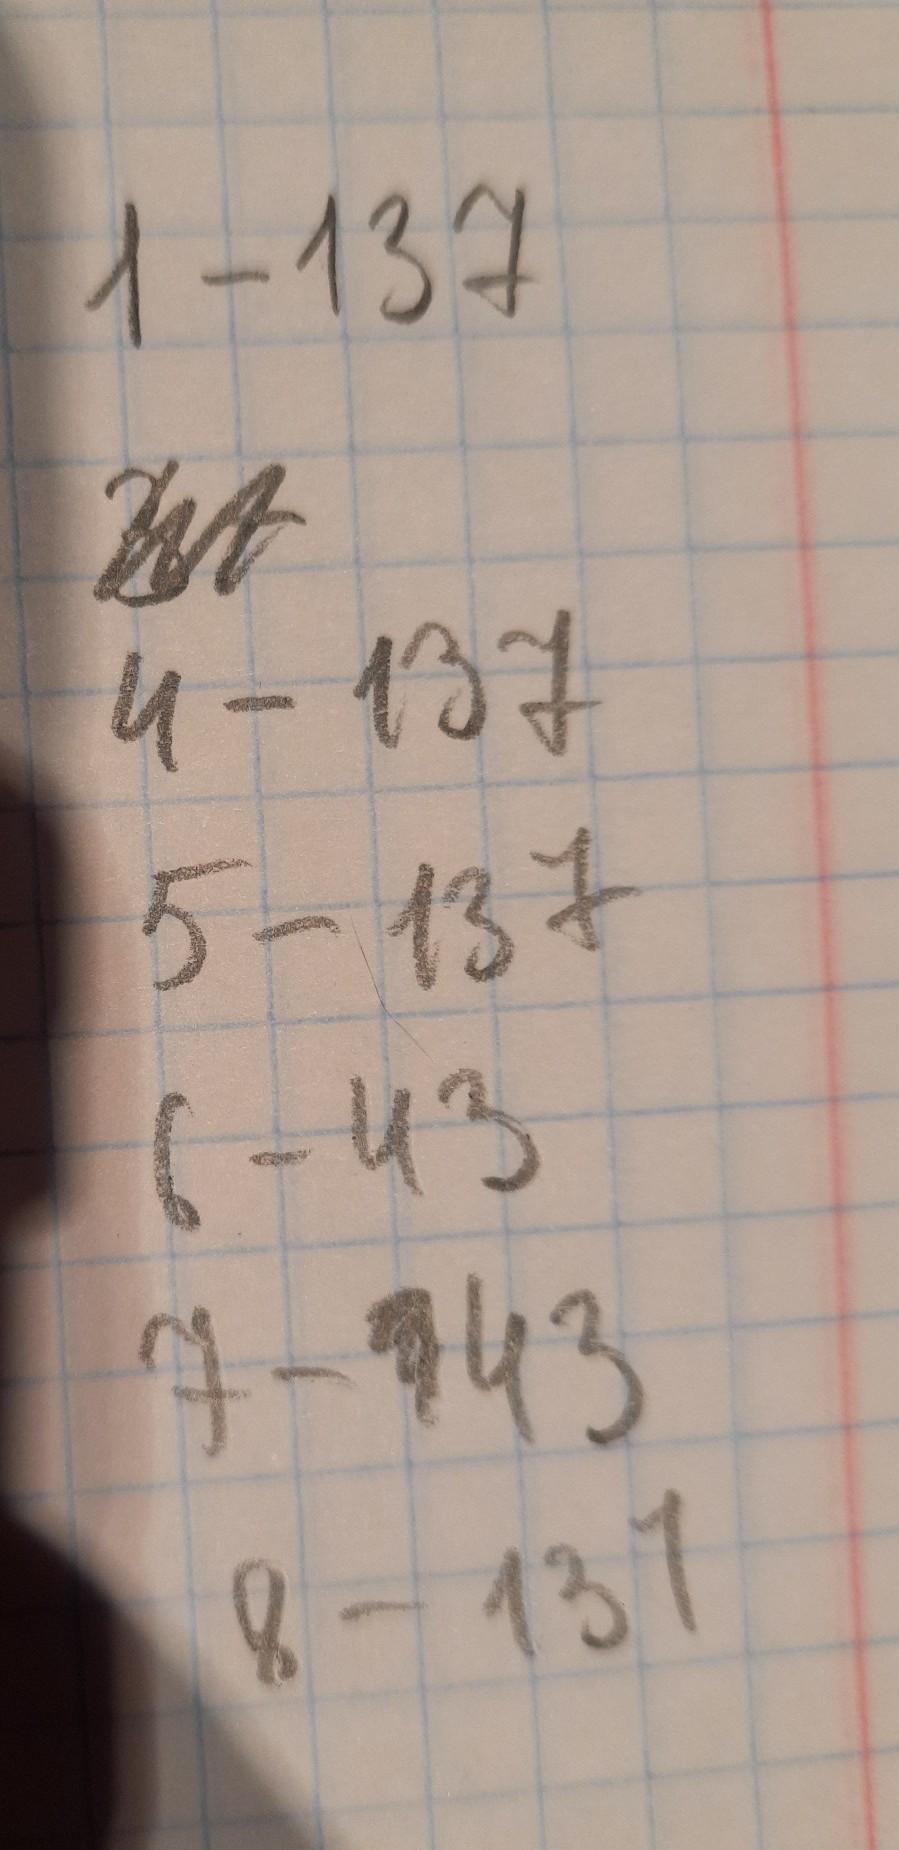 1 - 137
4 - 137
5 - 137
6 - 43
7 - 143
8 - 131